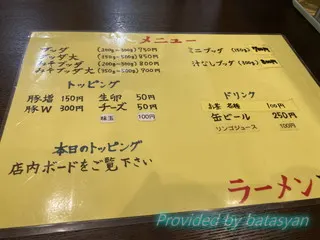 メニュー
ブッダ (200g~300g) 750円
ブッダ大
800円
ミニブッダ (150g) 700円
汁なしブッダ
トッピング
豚増 150円 生卵 50円
豚W 300円 チーズ 50円
味玉 100円
ドリンク
お茶 各種 100円
缶ビール 250円
リンゴジュース 100円
本日のトッピング
店内ボードをご覧下さい
ラーメン
Provided by batasyan